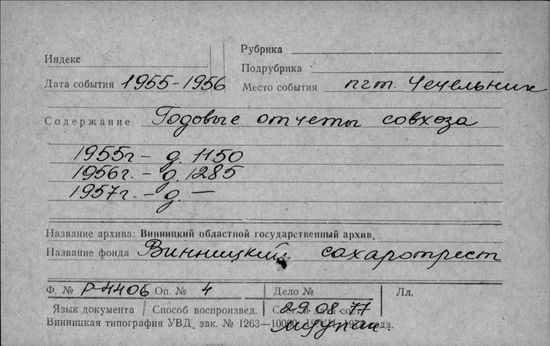 Рубрика
Индекс
Подрубрика
Дата события 1955-1956 Место события пгт. Чечельник
Содержание Годовые отчеты совхоза
1955г – д. 1150
1956г. – д. 1285
1957г. – д. —
Название архива: Винницкий областной государственный архив.
Название фонда Винницкий сахаротрест
Ф. № Р-4406 Оп. № 4 Дело № Лл.
Язык документа Способ воспроизвед. 29.08.77
Винницкая типография УВД, зак. № 1263—